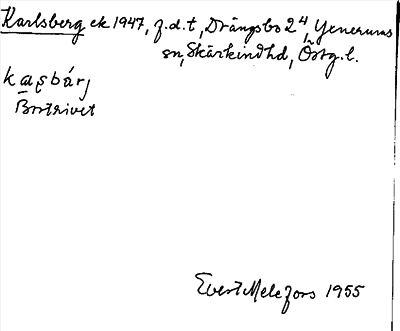 Karlsberg ek 1947, f.d.t, Drängsbo 2⁴, Yxnerums
sn, Skärkind hd, Östg.l.
kasbárj
Bortrivet
Evert Melefors 1955